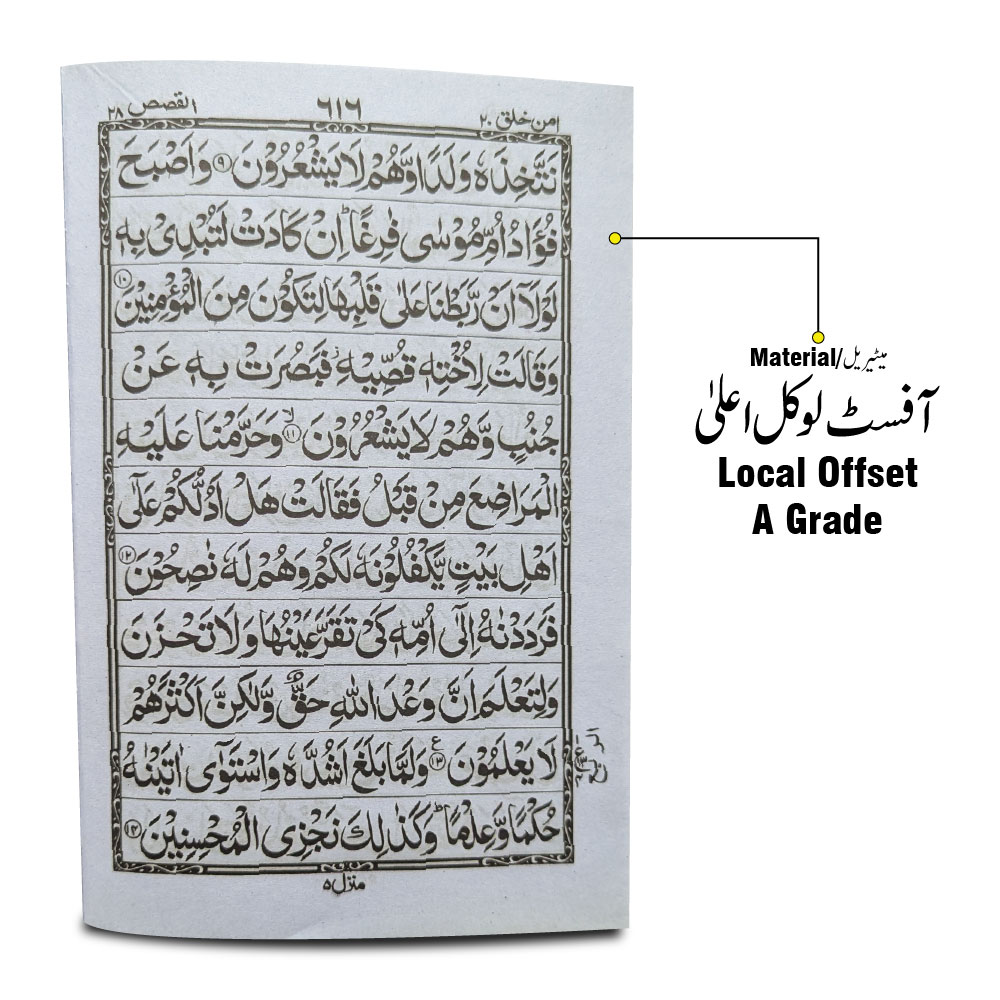 امن خلق ٢٠
٦١٦
القصص ٢٨
نَتَّخِذَهٗ وَلَدًا وَّهُمْ لَا يَشْعُرُوْنَ ۹ وَاَصْبَحَ
فُؤَادُ اُمِّ مُوْسٰى فٰرِغًا ؕ اِنْ كَادَتْ لَتُبْدِىْ بِهٖ
لَوْلَاۤ اَنْ رَّبَطْنَا عَلٰى قَلْبِهَا لِتَكُوْنَ مِنَ الْمُؤْمِنِيْنَ ۱۰
وَقَالَتْ لِاُخْتِهٖ قُصِّيْهِ ز فَبَصُرَتْ بِهٖ عَنْ
جُنُبٍ وَّهُمْ لَا يَشْعُرُوْنَ لا ۱۱ وَحَرَّمْنَا عَلَيْهِ
الْمَرَاضِعَ مِنْ قَبْلُ فَقَالَتْ هَلْ اَدُلُّكُمْ عَلٰۤى
اَهْلِ بَيْتٍ يَّكْفُلُوْنَهٗ لَكُمْ وَهُمْ لَهٗ نٰصِحُوْنَ ۱۲
فَرَدَدْنٰهُ اِلٰۤى اُمِّهٖ كَىْ تَقَرَّ عَيْنُهَا وَلَا تَحْزَنَ
وَلِتَعْلَمَ اَنَّ وَعْدَ اللّٰهِ حَقٌّ وَّلٰكِنَّ اَكْثَرَهُمْ
لَا يَعْلَمُوْنَ ع ۱۳ وَلَمَّا بَلَغَ اَشُدَّهٗ وَاسْتَوٰۤى اٰتَيْنٰهُ
حُكْمًا وَّعِلْمًا ؕ وَكَذٰلِكَ نَجْزِى الْمُحْسِنِيْنَ ۱۴
منزل ٥
Material/میٹیریل
آفسٹ لوکل اعلیٰ
Local Offset
A Grade